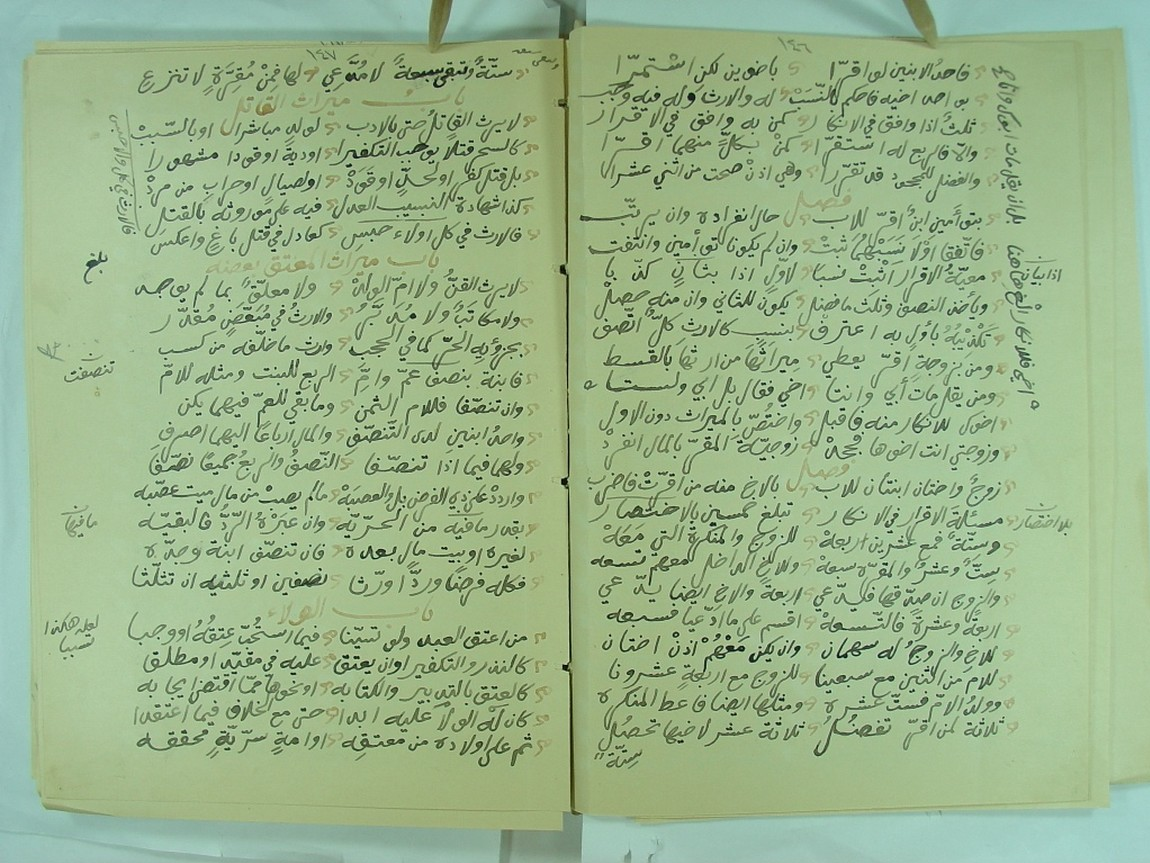 ١٤٦
فاحد الابنين لو اقرا باخوين لكن استمرا
بواحد اخيه فاحكم بالنسب له والارث وله فيه وجب
ثلث اذا وافق في الانكار كمن به وافق في الاقرار
والا فالربع له استقرا كمن بكل منهما اقرا
والفضل للمجحود قد تقررا وهي اذن صحت من اثني عشرا
فصل
بتوأمين ابن اقر للاب حال انفراده وان يرتب
فاتفقا اولا نسبهما ثبت وان لم يكونا توأمين وانتفت
معية الاقرار اثبت نسبا لاول اذا بثان كذبا
وياخذ النصف وثلث ما فضل يكون للثاني وان منه حصل
تكذيبه باول به اعترف بنسب كالارث كل اتصف
ومن بزوجة اقر يعطي ميراثها من ارثها بالقسط
ومن يقل مات أبي وانتا اخي فقال بل ابي ولستا
اخوك للانكار منه فاقبل واختص بالميراث دون الاول
وزوجتي انت اخوها فجحد زوجية المقر بالمال انفرد
فصل
زوج واختان ابنتان للاب بالاخ منه من اقرت فاضرب
مسئلة الاقرار في الانكار تبلغ خمسين بالاختصار
وستة فمع عشرين اربعه للزوج والمنكرة التي معه
ست وعشر والمقره سبعه وللاخ الداخل معهم تسعه
والزوج ان صدقها فليدعي اربعة والاخ ايضا يدعي
اربعة وعشرة فالتسعه اقسم على ما ادعيا فسبعه
للاخ والزوج له سهمان وان يكن معهم اذن اختان
للام من اثنين مع سبعينا للزوج مع اربعة عشرونا
وولد الام فست عشره ومثلها ايضا فاعط المنكره
ثلاثة لمن اقر تفضل ثلاثة عشر لاخيها تحصل
ستة
اذا بثان
بلا اختصار
١٤٧
ستة وتبقى سبعة لا مدعي لها فمن مقرة لا تنزع
باب ميراث القاتل
لا يرث القاتل حتى بالادب لو لولد مباشرا او بالسبب
كالسحر قتلا يوجب التكفيرا او دية او قودا مشهورا
بل قتل كفر او لحد او قود او لصيال او حراب من مرد
كذا شهادة لنسيب العدل فيه على موروثه بالقتل
فالارث في كل اولاء حبس كعادل في قتل باغ واعكس
باب ميراث المعتق بعضه
لا يرث القن ولا ام الولد ولا معلق بما لم يوجد
ولا مكاتب ولا مدبر والارث في مبعض مقدر
بجزؤيه الحر كما في الحجب وارث ما خلفه من كسب
فابنة بنصف عم وام الربع للبنت ومثله للام
وان تنصفا فللام الثمن وما بقي للعم فيهما يكن
واحد ابنين لدى التنصف والمال ارباعا اليهما اصرف
ولهما فيما اذا تنصفا النصف والربع جميعا نصفا
واردد على ذي الفرض بل والعصبه مالم يصب من مال ميت عصبه
بقدر ما فيه من الحريه وان عبره الرد فالبقيه
لغيره او بيت مال بعده فان تنصف ابنة وجده
فكله فرضا وردا ورثا نصفين او ثلثيه ان تثلثا
باب الولاء
من اعتق العبد ولو تبينا فيما استحق عتقه او وجبا
كالنذر والتكفير او ان يعتق عليه في مقيد او مطلق
كالعتق بالتدبير والكتابه او نحوها مما اقتضى ايجابه
كان له الولا عليه ابدا حتى مع الخلاف فيما اعتقدا
ثم على اولاده من معتقه او امة سرية محققه
بلغ
تنصفت
ما فيهما
لعله هكذا